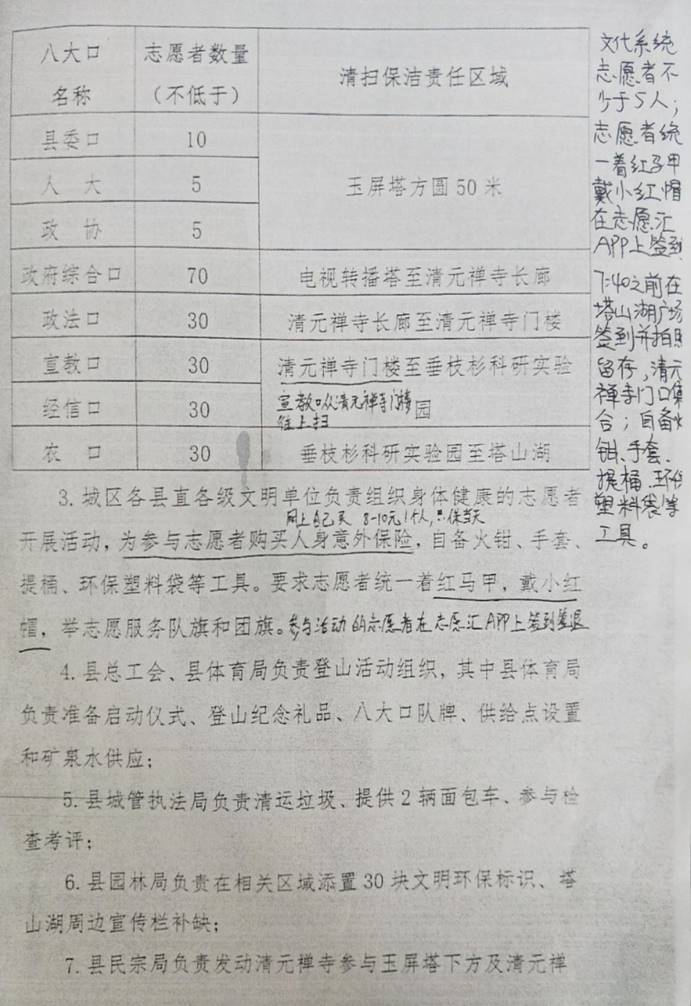 八大口名称 志愿者数量（不低于） 清扫保洁责任区域
县委口 10 玉屏塔方圆50米
人大 5
政协 5
政府综合口 70 电视转播塔至清元禅寺长廊
政法口 30 清元禅寺长廊至清元禅寺门楼
宣教口 30 清元禅寺门楼至垂枝杉科研实验园
宣教口从清元禅寺门楼
往上扫
经信口 30
农口 30 垂枝杉科研实验园至塔山湖
3.城区各县直各级文明单位负责组织身体健康的志愿者
网上自己买 8-10元1个人,
开展活动，为参与志愿者购买人身意外保险，自备火钳、手套、
提桶、环保塑料袋等工具。要求志愿者统一着红马甲，戴小红
帽，举志愿服务队旗和团旗。参与活动的志愿者在志愿汇APP上签到签退
4.县总工会、县体育局负责登山活动组织，其中县体育局
负责准备启动仪式、登山纪念礼品、八大口队牌、供给点设置
和矿泉水供应；
5.县城管执法局负责清运垃圾、提供2辆面包车、参与检
查考评；
6.县园林局负责在相关区域添置30块文明环保标识、塔
山湖周边宣传栏补缺；
7.县民宗局负责发动清元禅寺参与玉屏塔下方及清元禅
文化系统
志愿者不
少于5人；
志愿者统
一着红马甲
戴小红帽
在志愿汇
APP上签到
7:40之前在
塔山湖广场
签到并拍照
留存，清元
禅寺门口集
合；自备火
钳、手套、
提桶、环保
塑料袋等
工具。